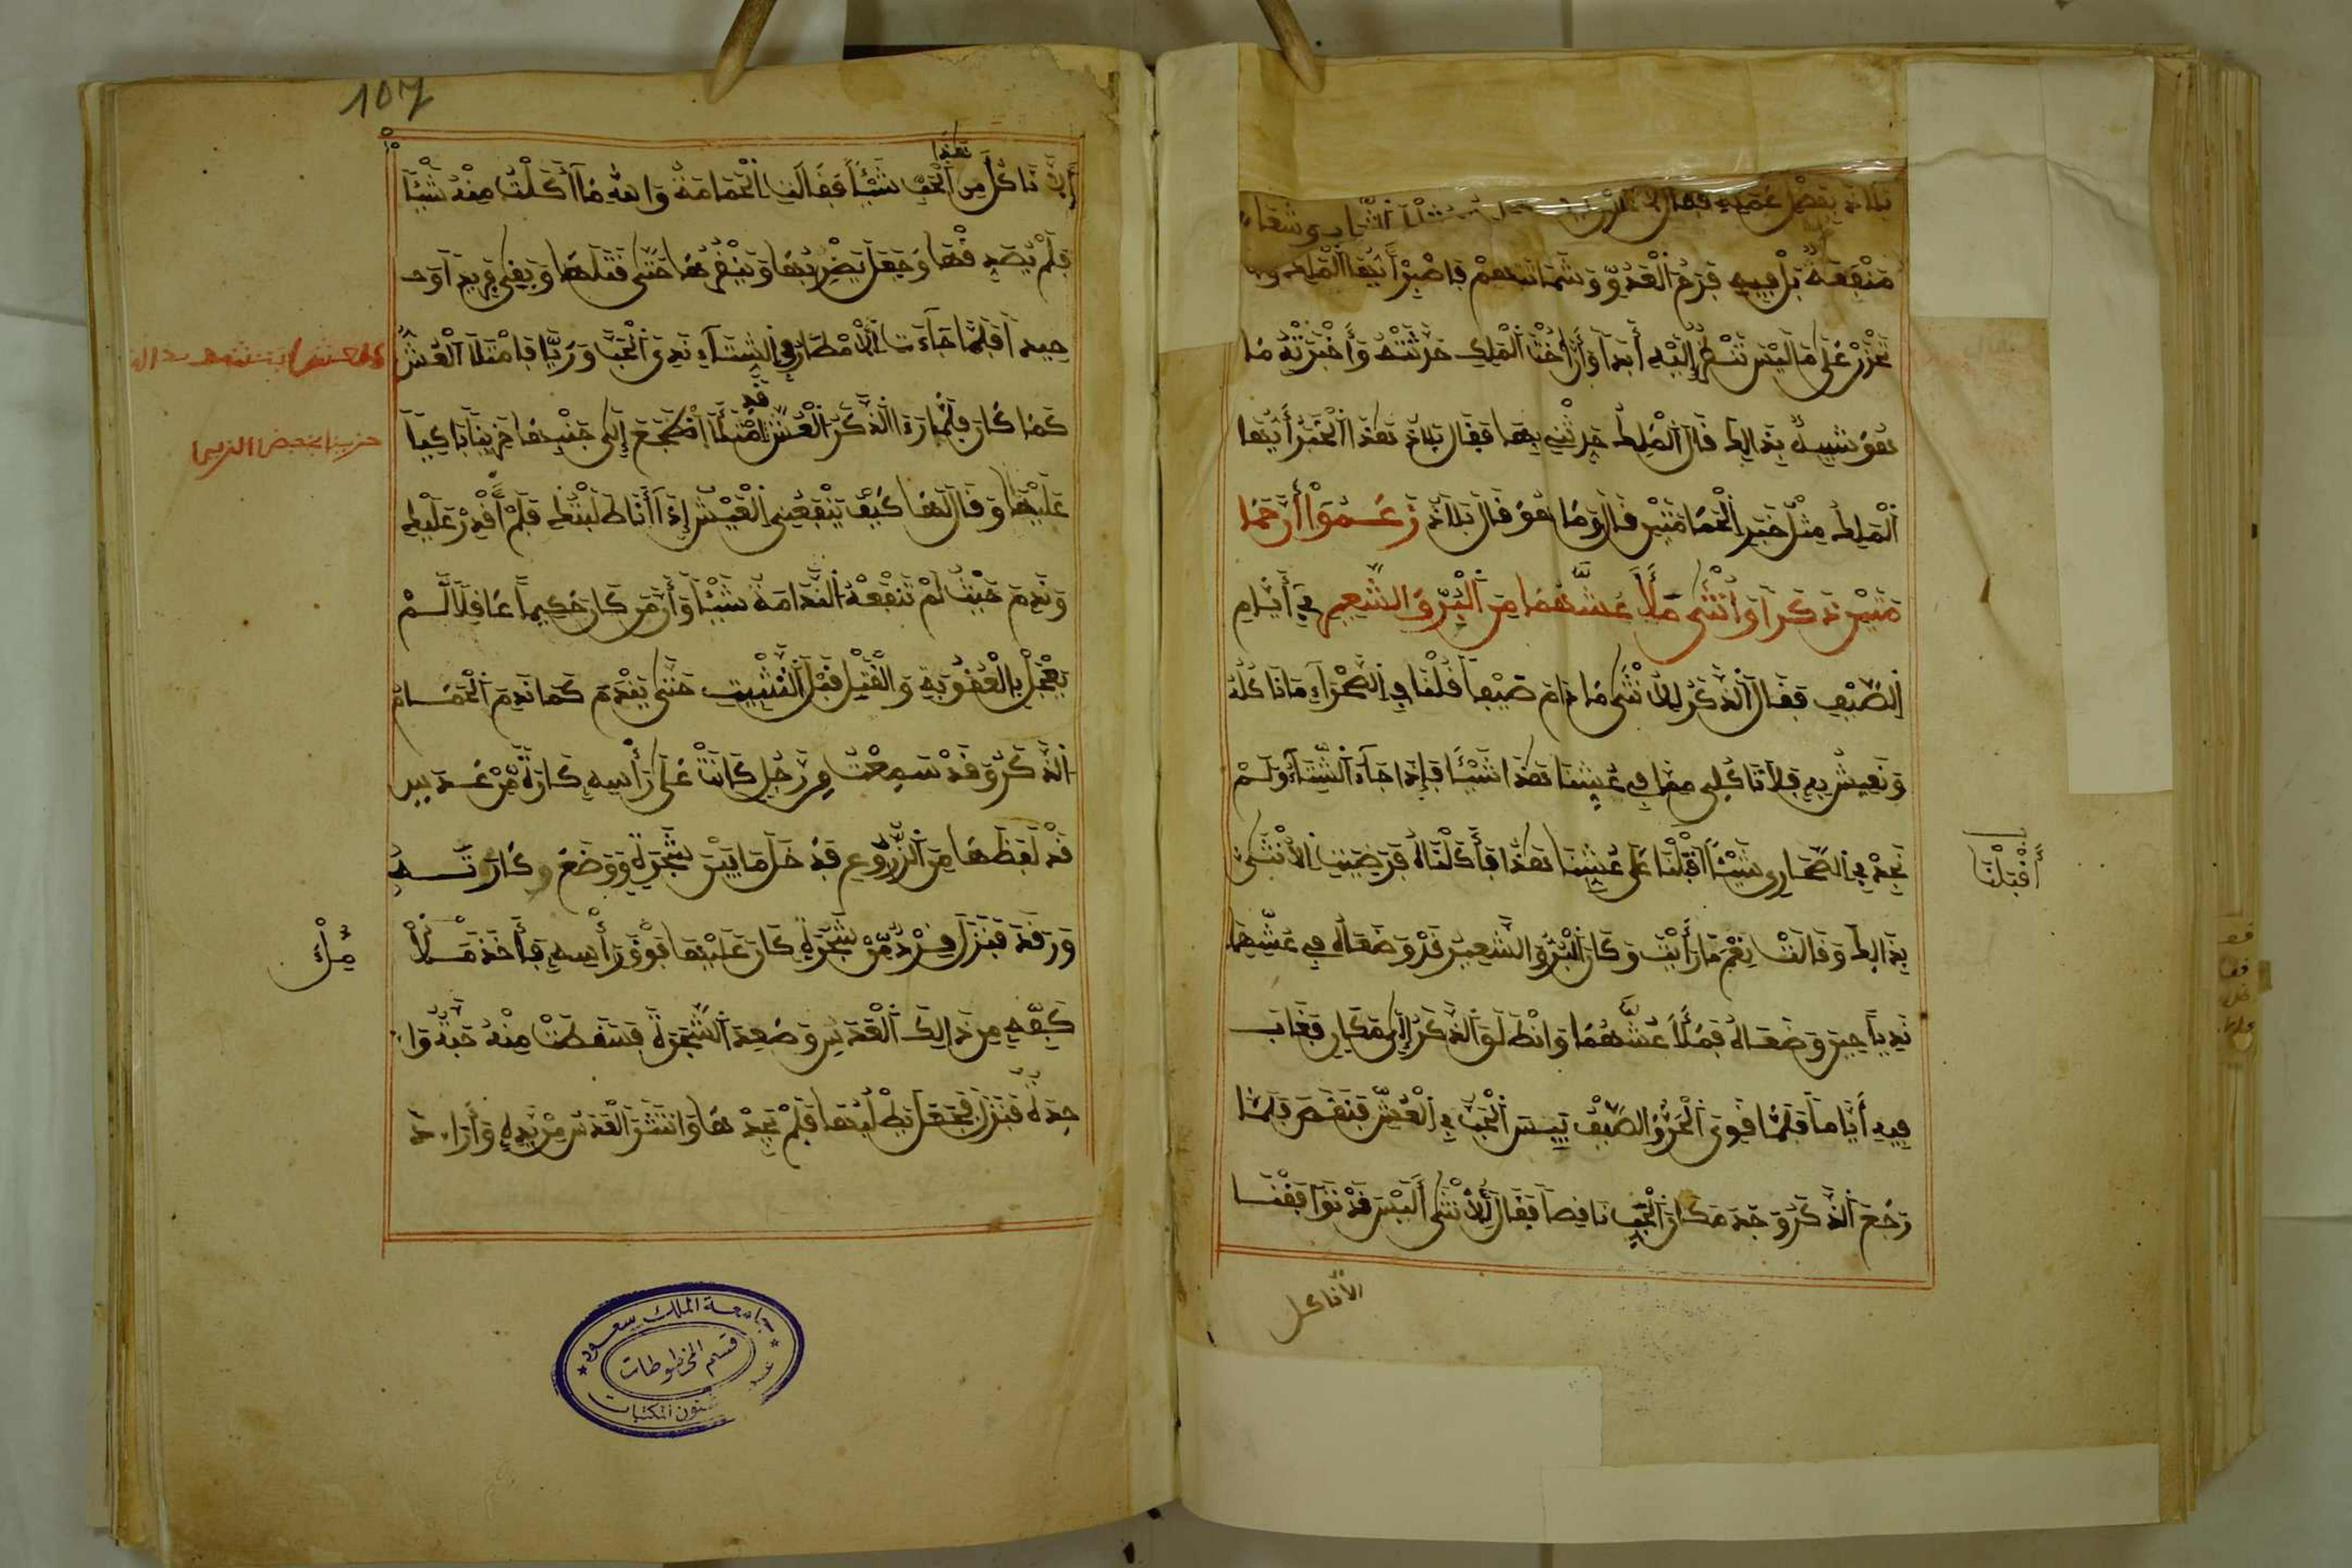 منفعة بل فيه فرح العدو وشماتتهم فاصبر أيها الملك ولا
تحزن على ما ليس تنظر إليه أبدا وإن أحب الملك حدثته وأخبرته بما
هو شبيه بذالك قال الملك حدثني بها فقال بلاذ هذا الخبر أيها
الملك مثل خبر الحمامتين قال وما هو قال بلاذ زعموا أن حما
متين ذكرا وأنثى ملأا عشهما من البر والشعير في أيام
الصيف فقال الذكر للأنثى ما دام صيفا قلنا في الصحراء ما ناكله
ونعيش به فلا تاكلي مما في عشنا هذا شيئا فإذا جاء الشتاء ولم
نجد في الصحاري شيئا أقبلنا على عشنا هذا فأكلناه فرضيت الأنثى
أقبلنا
بذالك وقالت نعم ما رأيت وكان البر والشعير قد وضعاه في عشهما
نديا حين وضعاه فملأ عشهما وانطلق الذكر إلى مكان فغاب
فيه أياما فلما قوي الحر والصيف يبس الحب في العش فنقص فلما
رجع الذكر وجد مكان الحب ناقصا فقال للأنثى أليس قد توافقنا
الأناكل
107
هذا
ألا ناكل من الحب شيئا فقالت الحمامة والله ما أكلت منه شيئا
فلم يصدقها وجعل يضربها وينقرها حتى قتلها وبقي فريدا وحـ
ـيدا فلما جاءت الأمطار في الشتاء ندي الحب وربا فامتلأ العش
قد
كما كان فلما رءا الذكر العش امتلأ اضطجع إلى جنبها حزينا باكيا
عليها وقال لها كيف ينفعني العيش إذا أنا طلبتك فلم أقدر عليك
وندم حيث لم تنفعه الندامة شيئا وإن من كان حكيما عاقلا لم
يعجل بالعقوبة والقتل قبل التثبيت حتى يندم كما ندم الحمام
الذكر وقد سمعت من رجل كانت على رأسه كارة من عدس
قد لقطها من الزروع فدخل ما بين شجرة ووضع كارته
ورقد فنزل قرد من شجرة كان عليها فوق رأسه فأخذ ملأ
ملء
كفه من ذالك العدس وصعد الشجرة فسقطت منه حبة وا
حدة فنزل فجعل يطلبها فلم يجدها وانتثر العدس من يده وأراد
جامعة الملك سعود
قسم المخطوطات
شئون المكتبات